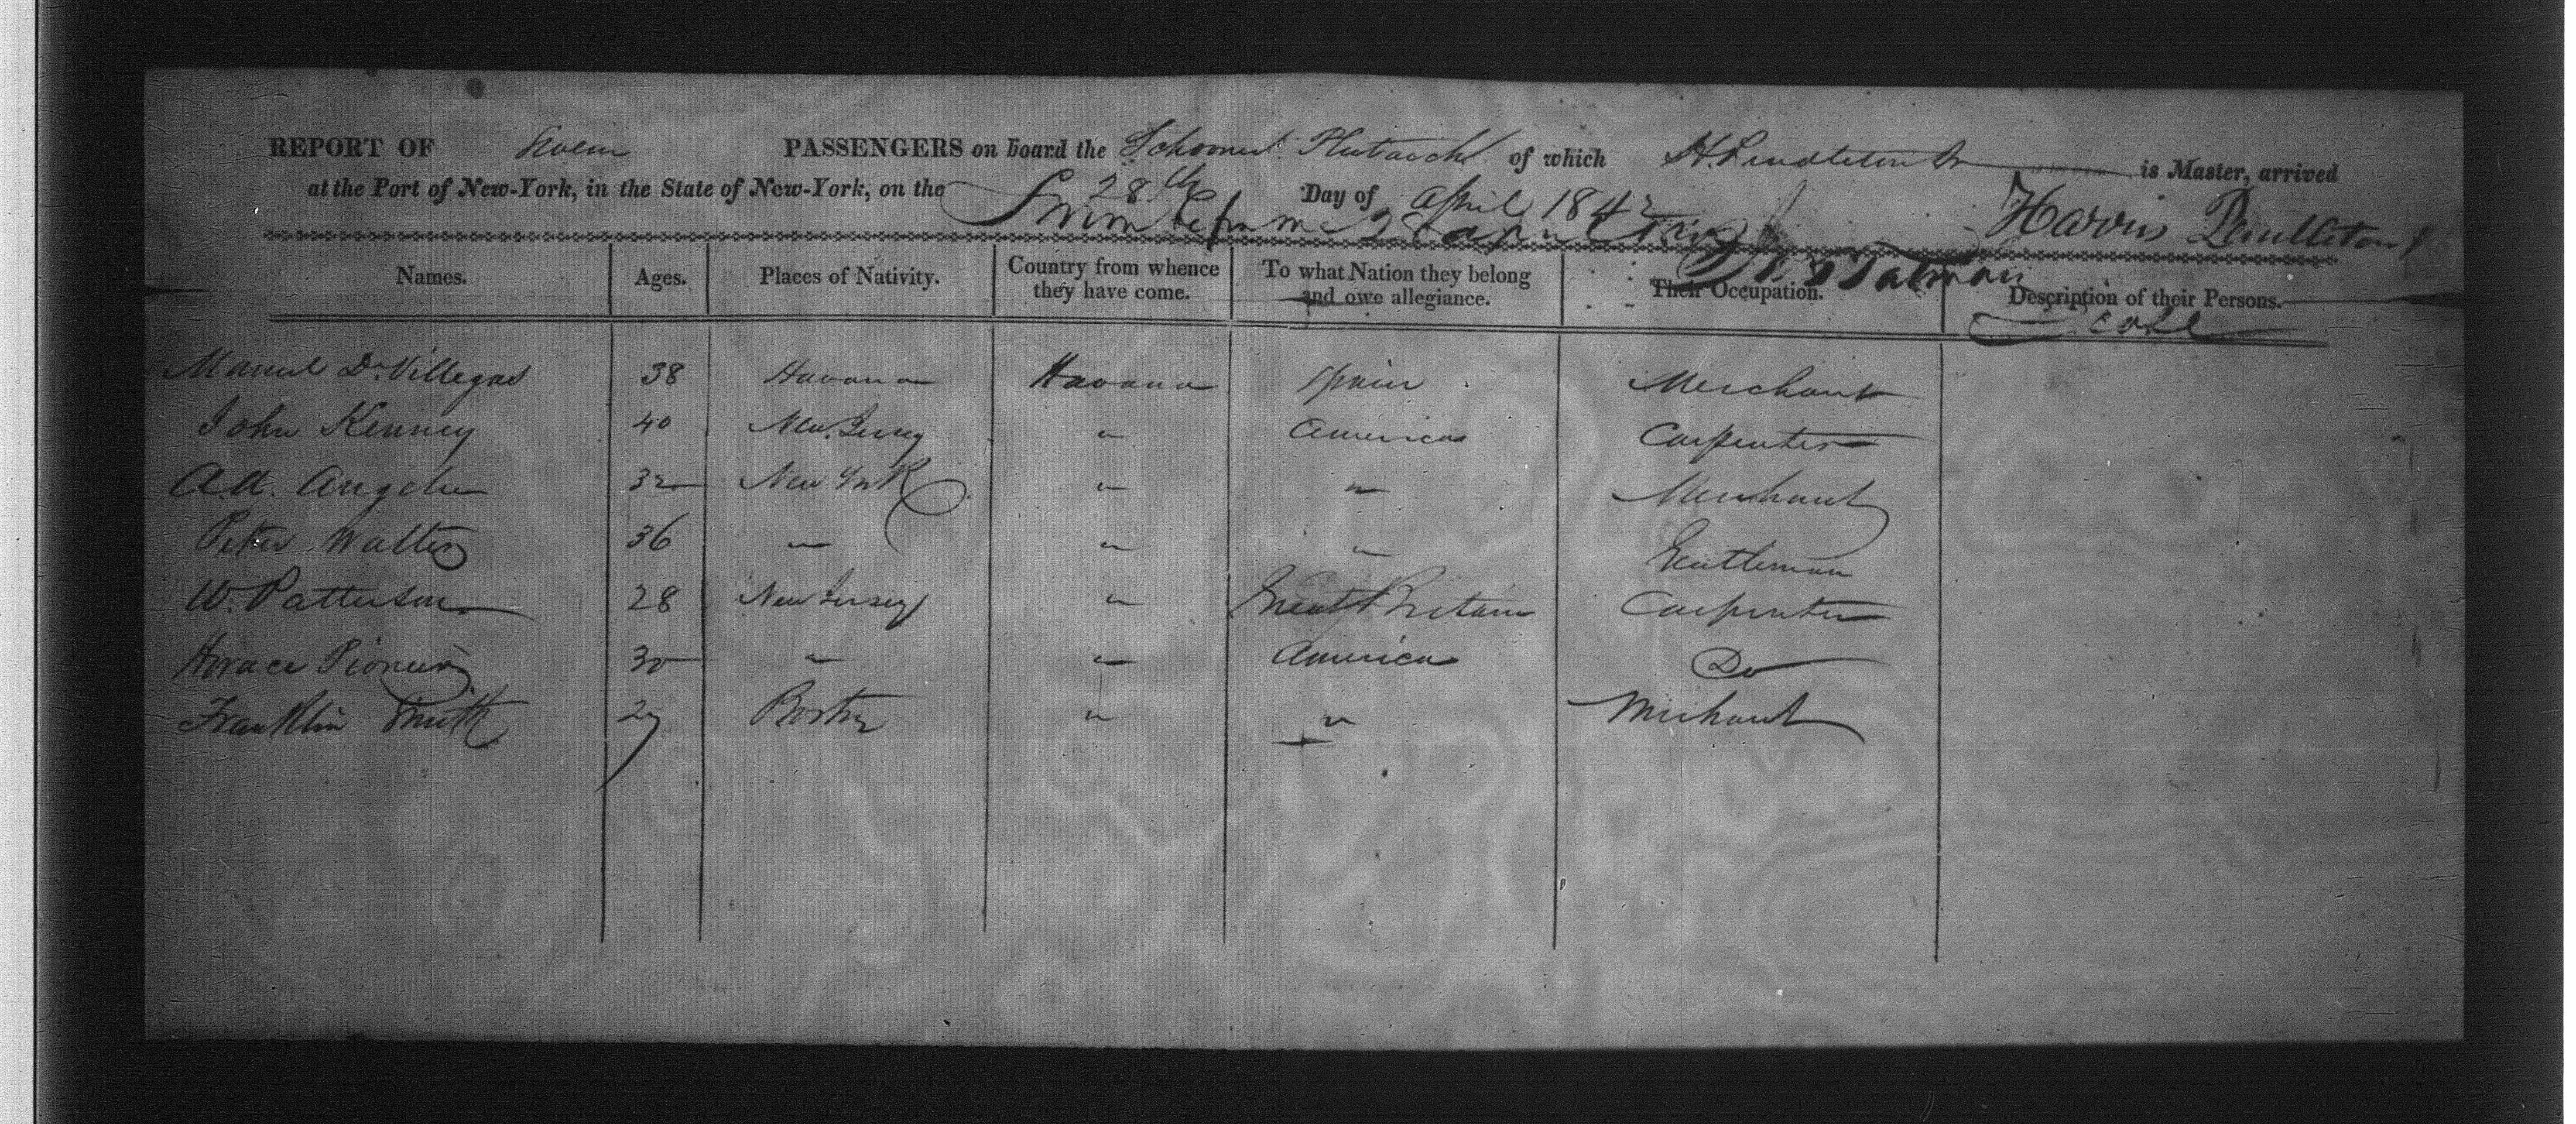 REPORT OF Seven PASSENGERS on board the Schooner Plutarch of which H. Pendleton Jr is Master, arrived
at the Port of New-York, in the State of New-York, on the 28th Day of April 1842
Sworn before me 28 April Harris Pendleton Jr
Names. Ages. Places of Nativity. Country from whence they have come. To what Nation they belong and owe allegiance. Their Occupation. Description of their Persons.
D Col
Manuel De Villegas 38 Havana Havana Spain Merchant
John Kenney 40 New Jersey " America Carpenter
A.A. 32 New York " " Merchant
Peter Walters 36 " " " Gentleman
W. Patterson 28 New Jersey " Great Britain Carpenter
Horace 30 " " America Do
Franklin Smith 27 Boston " " Merchant